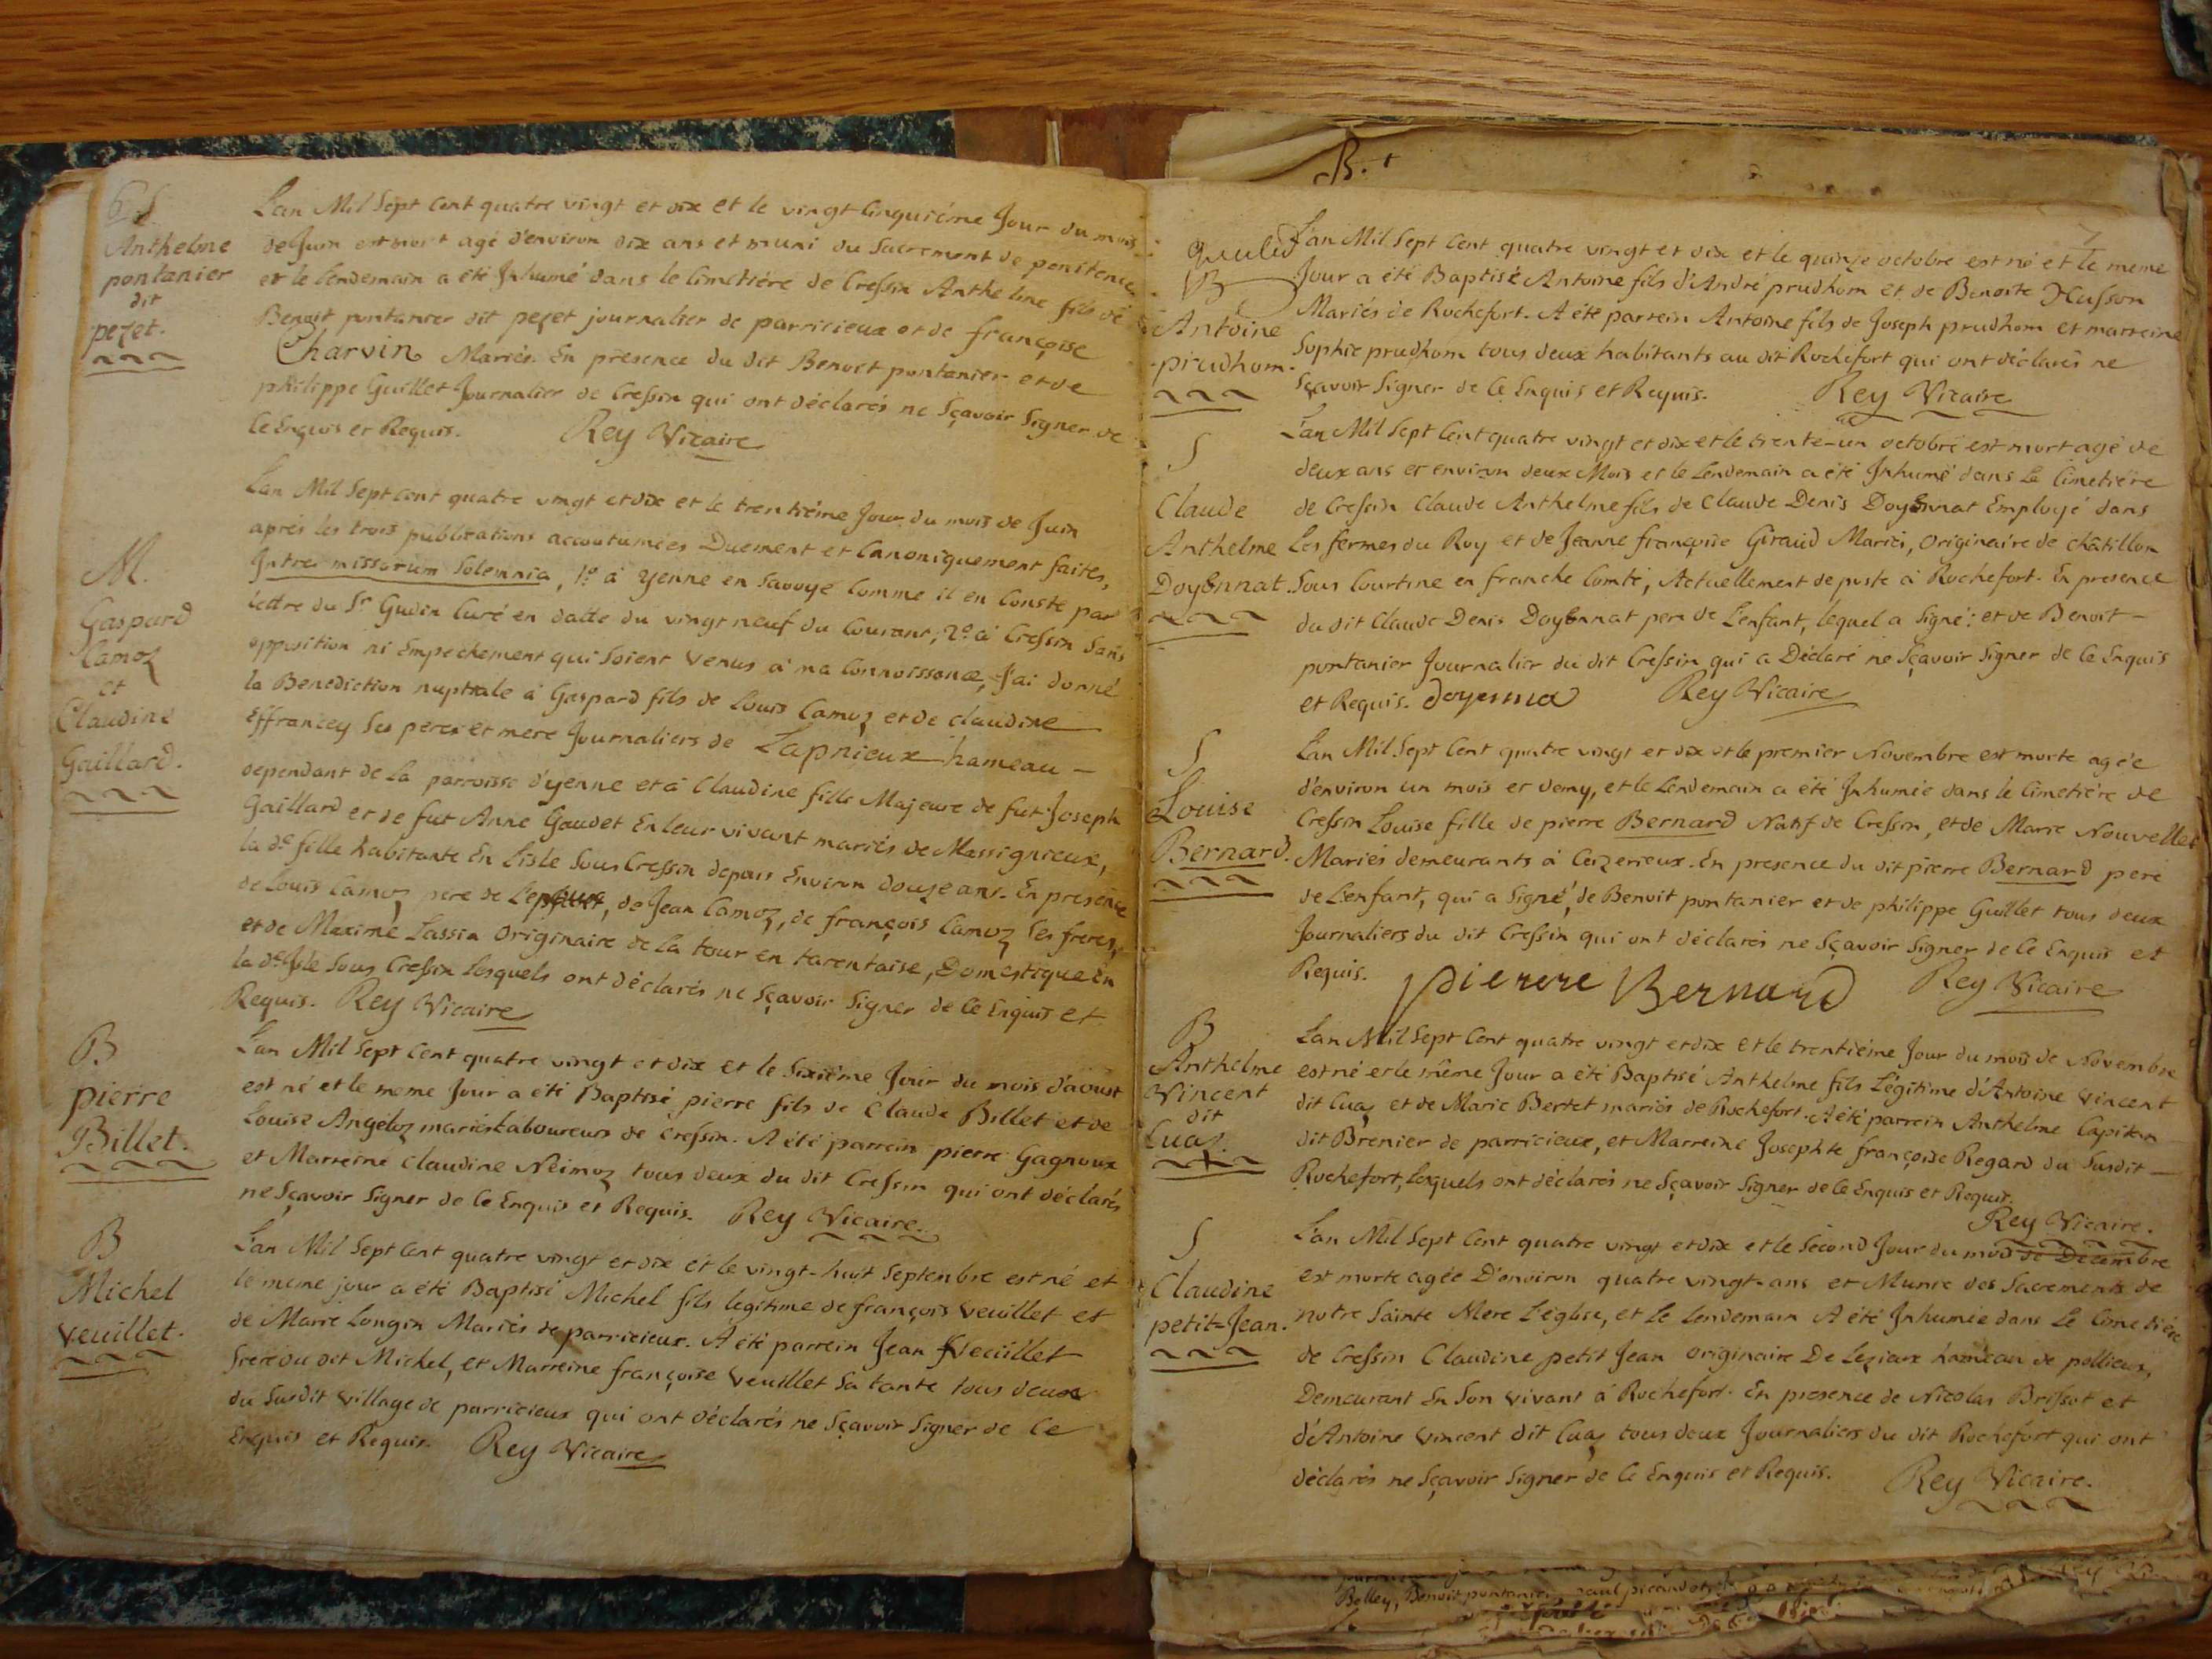 6 S
Anthelme
pontanier
dit
pezet.
L'an Mil Sept Cent quatre vingt et dix et le vingt Cinquiéme Jour du mois
de Juin est mort agé d'environ dix ans et muni du Sacrement de penitence
et le lendemain a été Inhumé dans le Cimetiére de Cressin Anthelme fils de
Benoit pontanier dit pezet journalier de parricieux et de françoise
Charvin Mariés. En présence du dit Benoit pontanier et de
philippe Guillet Journalier de Cressin qui ont déclarés ne Sçavoir Signer de
Ce Enquis et Requis. Rey Vicaire
M.
Gaspard
Camoz
et
Claudine
Gaillard.
L'an Mil Sept Cent quatre vingt et dix et le trentiéme Jour du mois de Juin
aprés les trois publications accoutumées Duement et Canoniquement faites,
Intra missarum Solemnia, 1º. à yenne en Savoye Comme il en Conste par
lettre du Sr Gudin Curé en datte du vingt neuf du Courant, 2º. à Cressin Sans
opposition ni Empechement qui Soient venus à ma Connoissance, J'ai donné
la Benediction nuptiale à Gaspard fils de Louis Camoz et de claudine
Effrancey Ses peres et mere Journaliers de Lapnieux hameau –
dependant de la parroisse d'yenne et à Claudine fille Majeure de fut Joseph
Gaillard et de fut Anne Gaudet En leur vivant mariés de Massignieux,
la de. fille habitante En Lisle Sous Cressin depuis Environ douze ans. En presence
de Louis Camoz pere de L'epoux, de Jean Camoz, de françois Camoz Ses freres,
et de Maxime Lassia Originaire de la tour en tarentaise, Domestique En
la de. Isle Sous Cressin Lesquels ont déclarés ne Sçavoir Signer de Ce Enquis et
Requis. Rey Vicaire
B
pierre
Billet.
L'an Mil Sept Cent quatre vingt et dix et le Sixiéme Jour du mois d'aoust
est né et le meme Jour a été Baptisé pierre fils de Claude Billet et de
Louise Angeloz mariés Laboureurs de Cressin. A été parrein pierre Gagnoux
et Marreine Claudine Neimoz tous deux du dit Cressin qui ont déclarés
ne Sçavoir Signer de Ce Enquis et Requis. Rey Vicaire.
B
Michel
Veuillet.
L'an Mil Sept Cent quatre vingt et dix et le vingt-huit Septenbre est né et
le meme jour a été Baptisé Michel fils legitime de françois Veuillet et
de Marie Longin Mariés de parricieux. A été parrein Jean Veuillet
frere du dit Michel, et Marreine françoise Veuillet Sa tante tous deux
du Susdit village de parricieux qui ont déclarés ne Sçavoir Signer de Ce
Enquis et Requis. Rey Vicaire
B.
7
B
Antoine
prudhom.
L'an Mil Sept Cent quatre vingt et dix et le quinze octobre est né et le meme
Jour a été Baptisé Antoine fils d'André prudhom et de Benoite Husson
Mariés de Rochefort. A été parrein Antoine fils de Joseph prudhom et marreine
Sophie prudhom tous deux habitants au dit Rochefort qui ont déclarés ne
Sçavoir Signer de Ce Enquis et Requis. Rey Vicaire
S
Claude
Anthelme
Doyennat.
L'an Mil Sept Cent quatre vingt et dix et le trente-un octobre est mort agé de
deux ans et environ deux Mois et le Lendemain a été Inhumé dans Le Cimetiére
de Cressin Claude Anthelme fils de Claude Denis Doyennat Employé dans
Les fermes du Roy et de Jeanne françoise Giraud Mariés, originaire de châtillon
Sous Courtine en franche Comté, Actuellement de poste à Rochefort. En presence
du dit Claude Denis Doyennat pere de L'enfant, lequel a Signé: et de Benoit –
pontanier Journalier du dit Cressin qui a Déclaré ne Sçavoir Signer de Ce Enquis
et Requis. doyenna Rey Vicaire
S
Louise
Bernard.
L'an Mil Sept Cent quatre vingt et dix et le premier Novembre est morte agée
d'environ un mois et demy, et le Lendemain a été Inhumée dans le Cimetiére de
Cressin Louise fille de pierre Bernard Natif de Cressin, et de Marie Nouvellet
Mariés demeurants à Ceizerieux. En presence du dit pierre Bernard pere
de L'enfant, qui a Signé, de Benoit pontanier et de philippe Guillet tous deux
Journaliers du dit Cressin qui ont déclarés ne Sçavoir Signer de Ce Enquis et
Requis. pierere Bernard Rey Vicaire
B
Anthelme
Vincent
dit
Cuaz.
L'an Mil Sept Cent quatre vingt et dix et le trentiéme Jour du mois de Novembre
est né et le même Jour a été Baptisé Anthelme fils Légitime d'Antoine Vincent
dit Cuaz et de Marie Bertet mariés de Rochefort. A été parrein Anthelme Capitan
dit Brenier de parricieux, et Marreine Josephte françoise Regard du Susdit –
Rochefort, Lesquels ont déclarés ne Sçavoir Signer de Ce Enquis et Requis.
Rey Vicaire.
S
Claudine
petit-Jean.
L'an Mil Sept Cent quatre vingt et dix et le Second Jour du mois de Decembre
est morte agée D'environ quatre vingt-ans et Munie des Sacrements de
notre Sainte Mere L'église, et Le Lendemain A été Inhumée dans Le Cimetiére
de Cressin Claudine petit Jean originaire De Lezieux hameau de pollieux,
Demeurant En Son vivant à Rochefort. En presence de Nicolas Brissot et
d'Antoine Vincent dit Cuaz tous deux Journaliers du dit Rochefort qui ont
déclarés ne Sçavoir Signer de Ce Enquis et Requis. Rey Vicaire.
Belley, Benoit pontanier